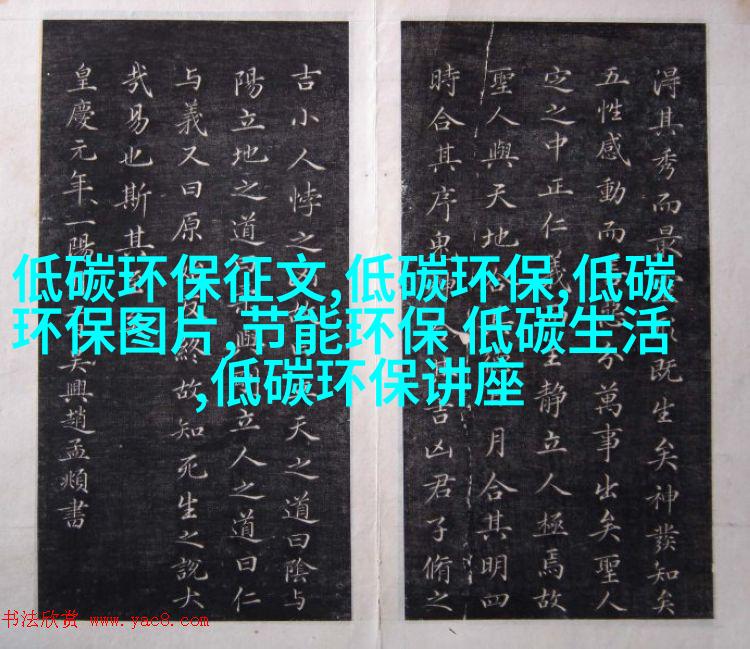 淂其秀而最既生矣神發知矣
五性感動而分萬事出矣聖人
定之中正仁義主靜立人極焉故
聖人與天地月合其明四
時合其序鬼其吉凶君子脩之
吉小人悖之天之道曰陰与
陽立地之道曰立人之道曰仁
与義又曰原終故知死生之說大
哉易也斯其
皇慶元年一陽月吳興趙孟頫書
低碳环保征文,低碳环保,低碳
环保图片,节能环保 低碳生活
,低碳环保讲座
书法欣赏 www.yac8.com